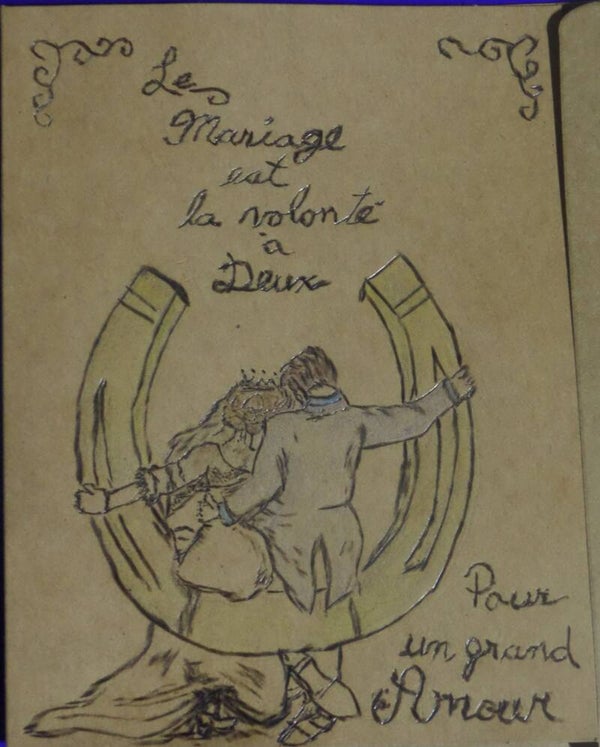 Les
Mariage
est
la volonté
à
Deux
Pour
un grand
Amour